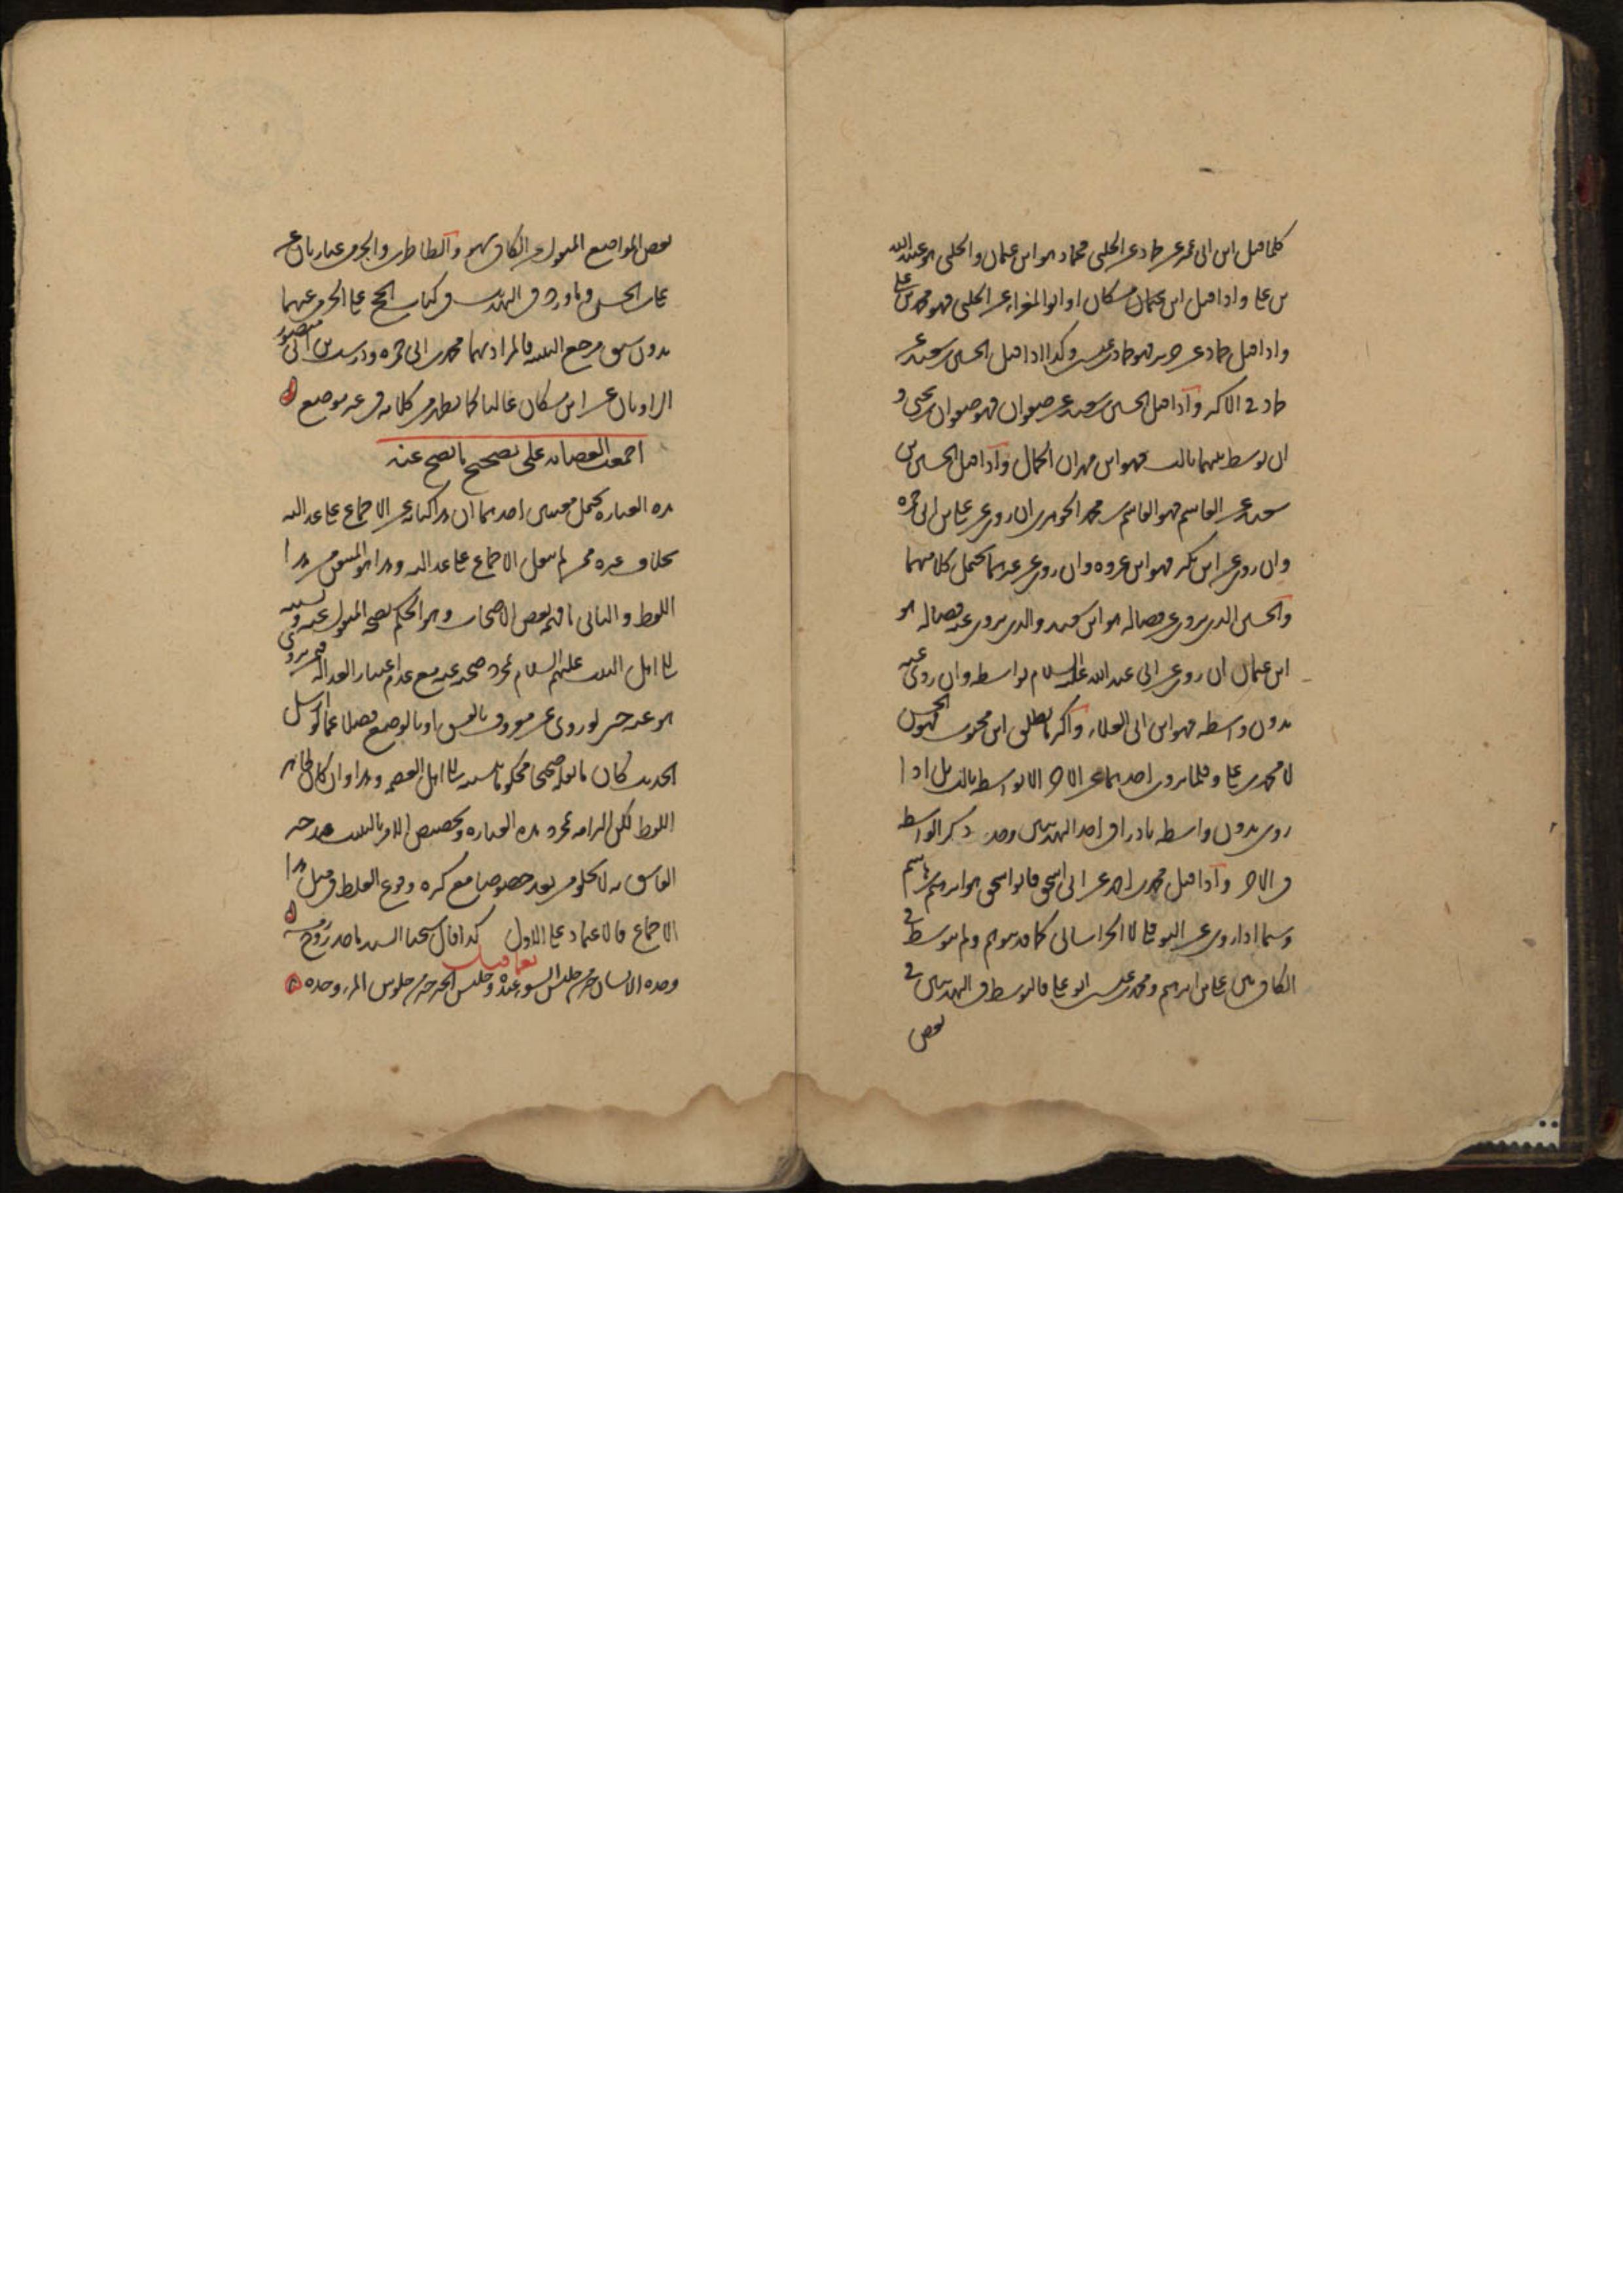 كلما قيل ابن ابى عمير عن حماد عن الحلبى فحماد هو ابن عثمان والحلبى هو عبيد الله
بن على واذا قيل ابن عثمان مسكان او ابو المغراء عن الحلبى فهو محمد بن على
واذا قيل حماد عن حريز فهو حماد بن عيسى وكذا اذا قيل الحسين بن سعيد عن
حماد فى الاكثر واذا قيل الحسين بن سعيد عن صفوان فهو صفوان بن يحيى و
ان توسط بينهما ثالث فهو ابن مهران الجمال واذا قيل الحسين بن
سعيد عن القاسم فهو القاسم بن محمد الجوهرى ان روى عن على بن ابى حمزه
وان روى عن ابن بكير فهو ابن عروه وان روى عن غيرهما يحتمل كلا منهما
والحسين الذى يروى عن فضاله هو ابن سعيد والذى يروى عنه فضاله هو
ابن عثمان ان روى عن ابى عبد الله عليه السلام بواسطه وان روى عنه
بدون واسطه فهو ابن ابى العلاء واكثر ما يطلق ابن محبوب فهو الحسن
لا محمد بن على وقلما يروى احدهما عن الاخر الا بواسطه ثالث بل اذا
روى بدون واسطه نادرا فى احد التهذيبين وجد ذكر الواسطه
فى الاخر واذا قيل محمد بن احمد عن ابى اسحق فابو اسحق هو ابرهيم بن هاشم
وسيما اذا روى عن النوفلى لا الخراسانى كما قد يتوهم ولم يتوسط فى
الكافى بين على بن ابرهيم ومحمد بن عيسى ابو على فالتوسط فى التهذيبين فى
بعض
بعض المواضع المنقول عن الكافى سهو والطاطرى والجرمى عبارتان عن
على بن الحسن وما ورد فى التهذيب فى كتاب الحج على الجرمى عنهما
بدون سبق مرجع التثنيه فالمراد بهما محمد بن ابى حمزه ودرست بن ابى منصور
الراويان عن ابن مسكان غالبا كما يظهر من كلامه فى غير موضع
اجمعت العصابه على تصحيح ما يصح عنه
هذه العباره يحتمل معنيين احدهما ان هذا كنايه عن الاجماع على عدالته
بخلاف غيره ممن لم ينقل الاجماع على عدالته وهذا هو المتيقن من هذا
اللفظ والثانى ما فهمه بعض الاصحاب وهو الحكم بصحه المنقول عنه ونسبته
الى اهل البيت عليهم السلام بمجرد صحته عنه مع عدم اعتبار العداله فيمن يروى
هو عنه حتى لو روى عن معروف بالفسق او بالوضع فضلا عما لو ارسل
الحديث كان ما نقله صحيحا محكوما بنسبته الى اهل العصمه وهذا وان كان ظاهر
اللفظ لكن الزامه بمجرد هذه العباره وتخصيص الامر بالتثبت عند خبر
الفاسق به لا يخلو من بعد خصوصا مع كثره وقوع الغلط فى مثل هذا
الاجماع فالاعتماد على الاول كذا قال شيخنا السيد ماجد روح رمسه
نعما قيل
وحده الانسان خير من جليس السوء عنده وجليس الخير خير من جلوس المرء وحده